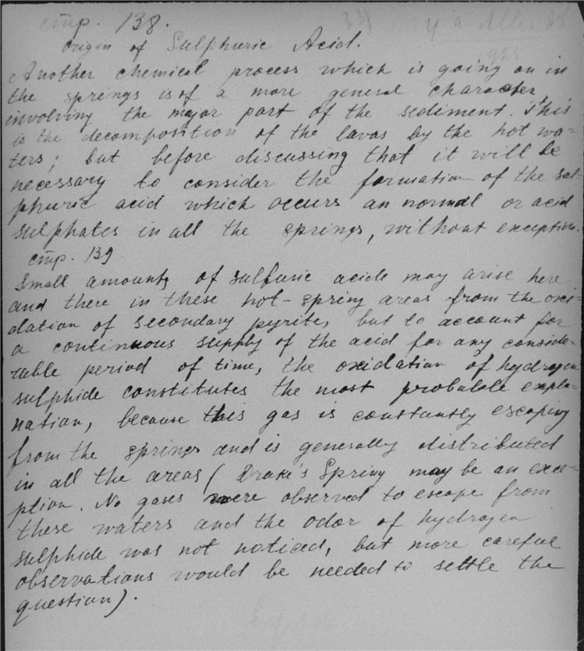 стр. 138.
Origin of Sulphuric Acid.
Another chemical process which is going on in
the springs is of a more general character
involving the major part of the sediment. This
is the decomposition of the lavas by the hot wa-
ters; but before discussing that it will be
necessary to consider the formation of the sul-
phuric acid which occurs an normal or acid
sulphates in all the springs, without exception.
стр. 139
Small amounts of sulfuric acide may arise here
and there in these hot-spring areas from the oxi-
dation of secondary pyrite, but to account for
a continuous supply of the acid for any conside-
rable period of time, the oxidation of hydrogen
sulphide constitutes the most probable expla-
nation, because this gas is constantly escaping
from the springs and is generally distributed
in all the areas (Drake's Spring may be an exce-
ption. No gases were observed to escape from
these waters and the odor of hydrogen
sulphide was not noticed, but more careful
observations would be needed to settle the
question).